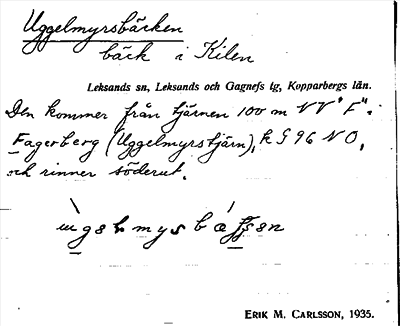 Uggelmyrsbäcken
bäck i Kilen
Leksands sn, Leksands och Gagnefs tg, Kopparbergs län.
Den kommer från tjärnen 100 m VV "F" i
Fagerberg (Uggelmyrstjärn), k G 96 NO,
och rinner söderut.
ERIK M. CARLSSON, 1935.